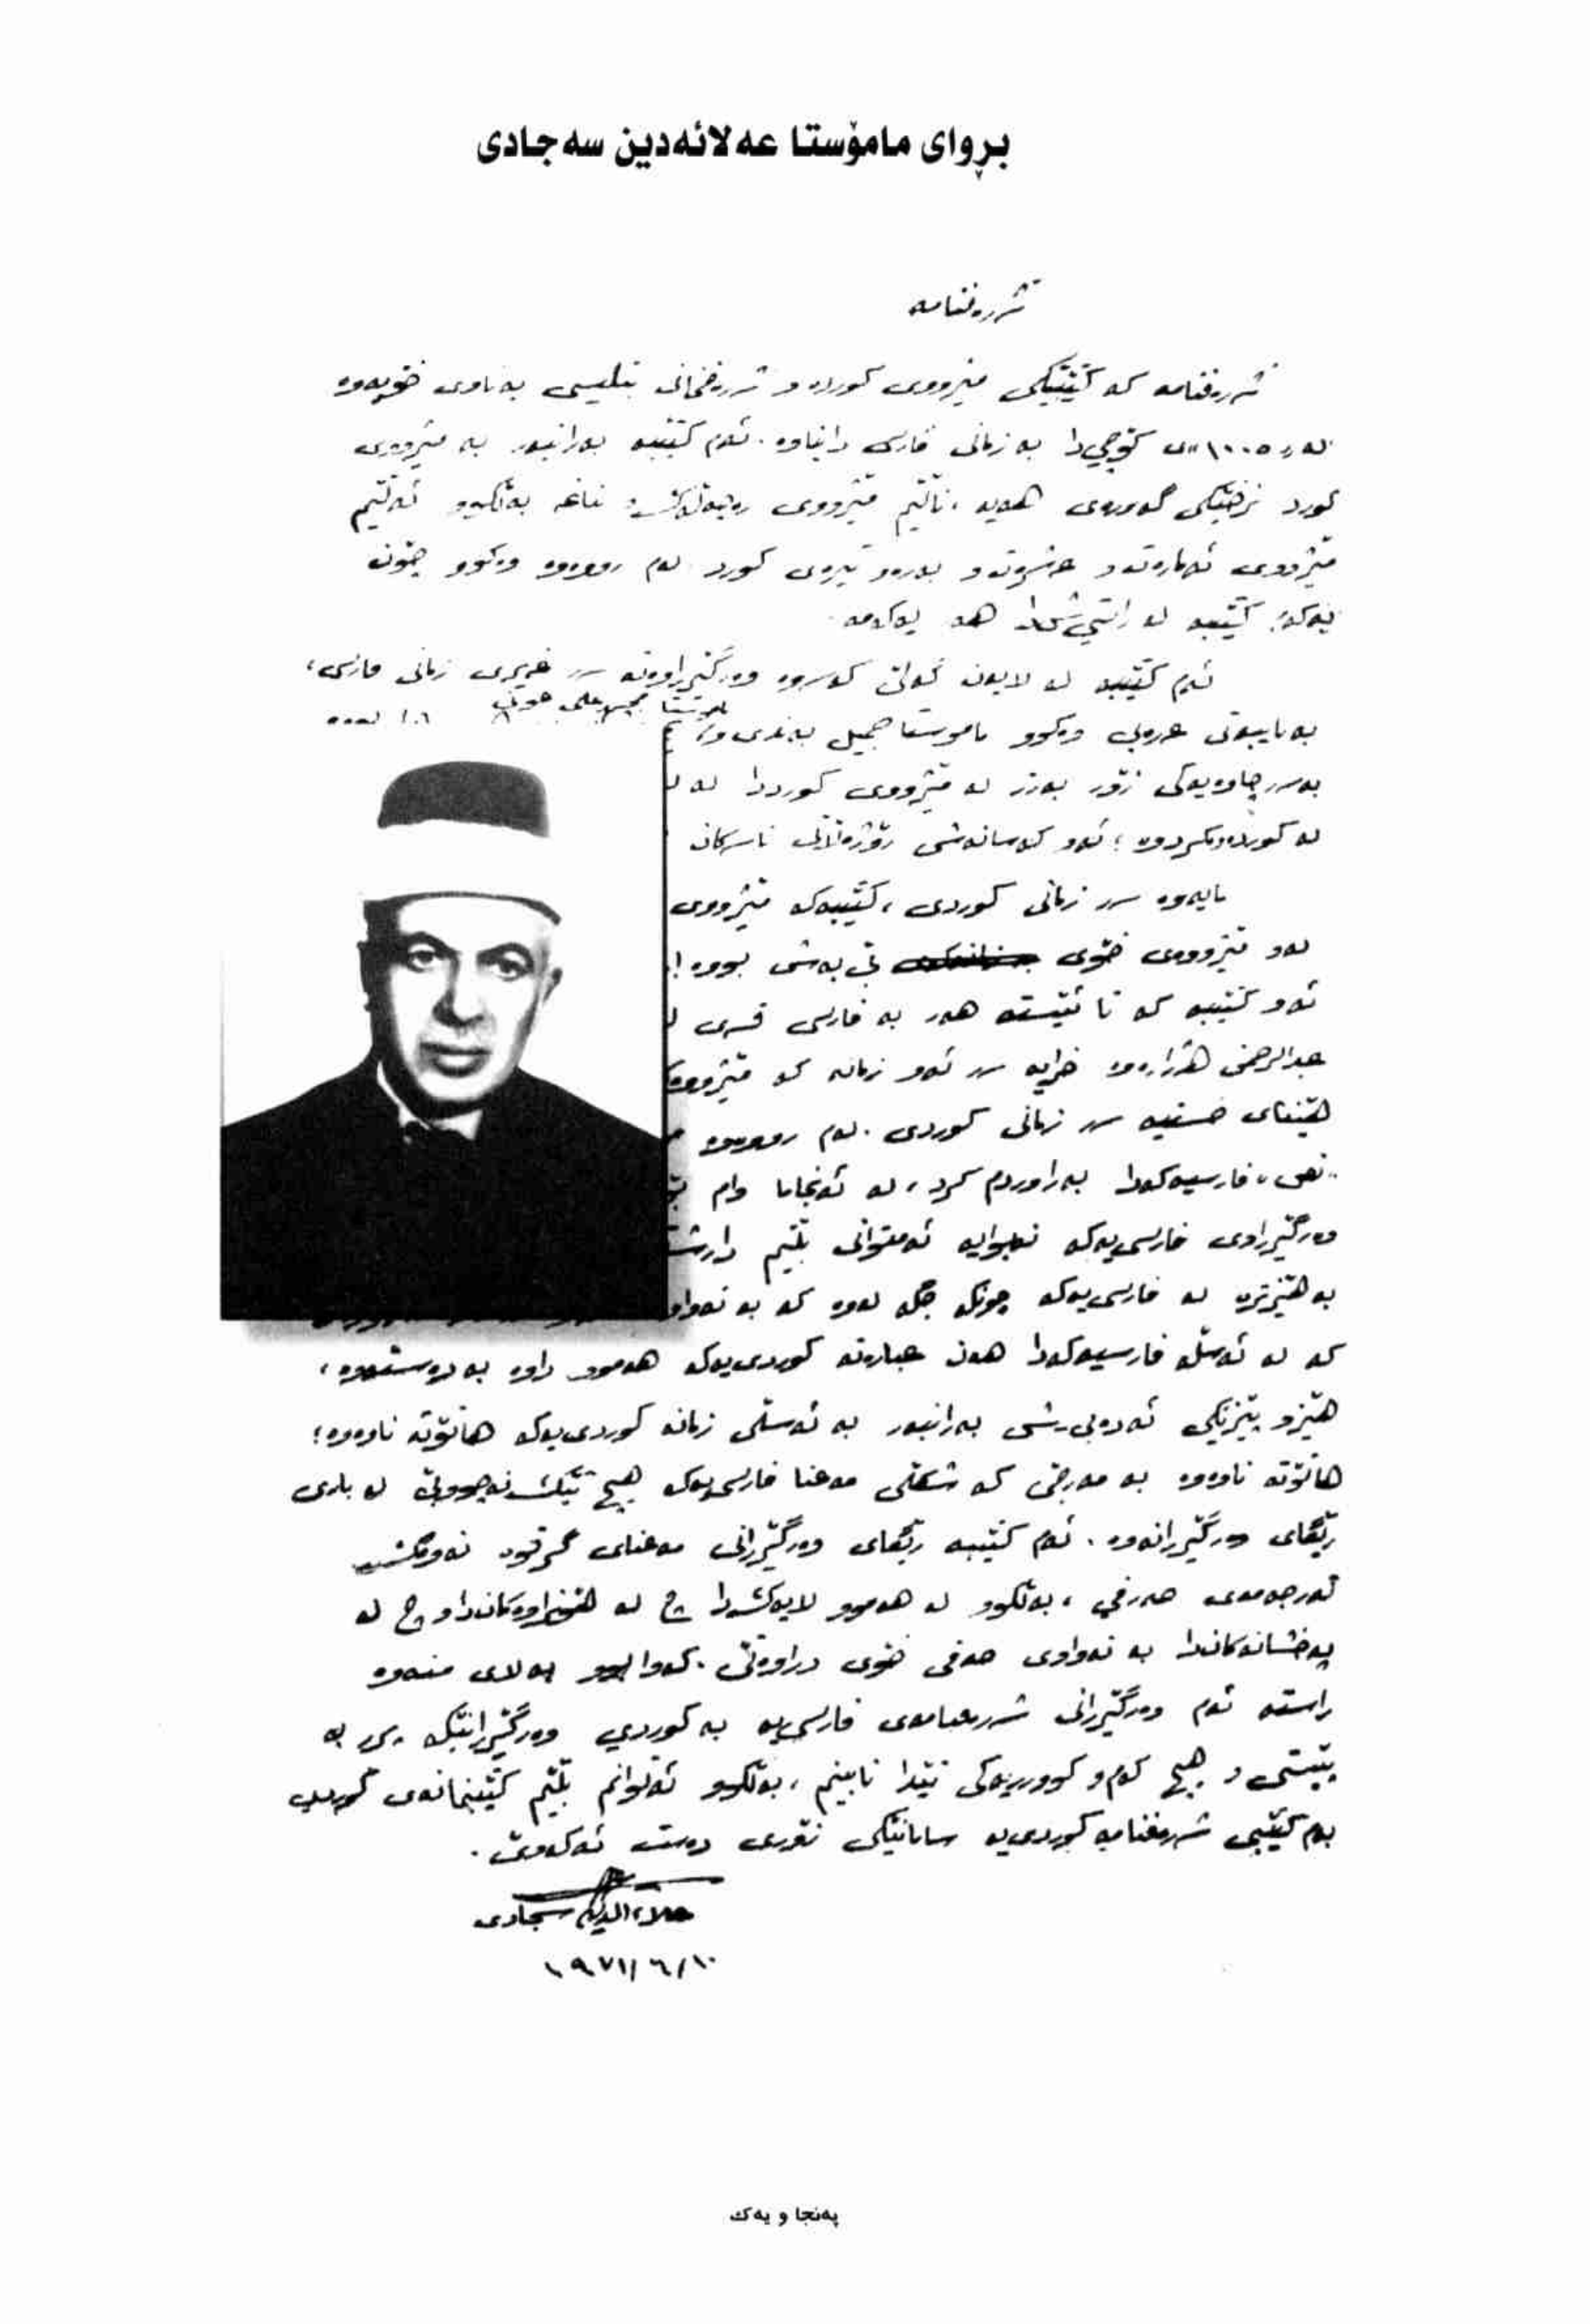 بڕوای مامۆستا عەلائەدین سەجادی
شەرەفنامە
شەرەفنامە کە کتێبێکی مێژووی کوردە و شەرەفخانی بتلیسی بە ناوی خۆیەوە
لە «١٠٠٥»ی کۆچی‌دا بە زمانی فارسی دایناوە. ئەم کتێبە بەرانبەر بە مێژووی
کورد نرخێکی گەورەی هەیە، ناڵێم مێژووی بەڵکوو ئەڵێم
مێژووی ئەمارەت و عەشرەت و بەرەو تیرەی کورد. لەم رووەوە وەکوو چۆن
یەکە کتێبە لە راستی‌شدا هەر یەکەمە.
ئەم کتێبە لە لایەن گەلێ کەسەوە وەرگێڕاوەتە سەر غەیری زمانی فارسی،
مامۆستا محمد علی عونی
بە تایبەتی عەرەبی وەکوو مامۆستا جمیل بەندی
بە سەرچاوەیەکی زۆر بەرز لە مێژووی کورددا
لە کوردەوە ئەو کەسانەشی رۆژهەڵاتی ناسەکان
بایەوە سەر زمانی کوردی، کتێبەکە مێژووی
لەو مێژووەی خۆی بێ بەش بووە
ئەو کتێبە کە تا ئێستە هەر بە فارسی قسەی
عبدالرحمن هەژارەوە خرایە سەر ئەو زمانە کە مێژووە
هێنای خستیە سەر زمانی کوردی. لەم رووەوە
«نص» فارسیەکەدا بەراوردم کرد، لە ئەنجاما وام
وەرگێڕاوی فارسی‌یەکە نەبوایە ئەمتوانی بڵێم
بەهێزترە لە فارسی‌یەکە چونکە جگە لەوە کە بە تەواو
کە لە ئەسڵە فارسیەکەدا هەن عیبارەتە کوردی‌یەکە هەموو داوە بە دەستەوە،
هێزو پێزێکی ئەدەبی‌شی بەرانبەر بە ئەسڵی زمانە کوردی‌یەکە هاتۆتە ناوەوە؛
هاتۆتە ناوەوە بە مەرجێ کە شکڵی مەعنا فارسی‌یەکە هیچ تێک نەچووبێ لە باری
رێگای وەرگێڕانەوە. ئەم کتێبە رێگای وەرگێڕانی مەعنای گرتووە نەوەکشە
تەرجەمەی حەرفی، بەڵکوو لە هەموو لایەکشدا چ لە هۆنراوەکاندا و چ لە
پەخشانەکاندا بە تەواوی حەقی خۆی دراوەتێ. کەوا بوو بە لای منەوە
راستە ئەم وەرگێڕانی شەرەفنامەی فارسی‌یە بە کوردی وەرگێڕانێکە پڕ بە
پێستی و هیچ کەم و کووڕیەکی تێدا نابینم، بەڵکوو ئەتوانم بڵێم کتێبخانەی کوردیی
بەم کتێبی شەرەفنامە کوردی‌یە سامانێکی زۆری دەست ئەکەوێ.
علاءالدین سجادی
١٩٧١/٦/١٠
پەنجا و یەک